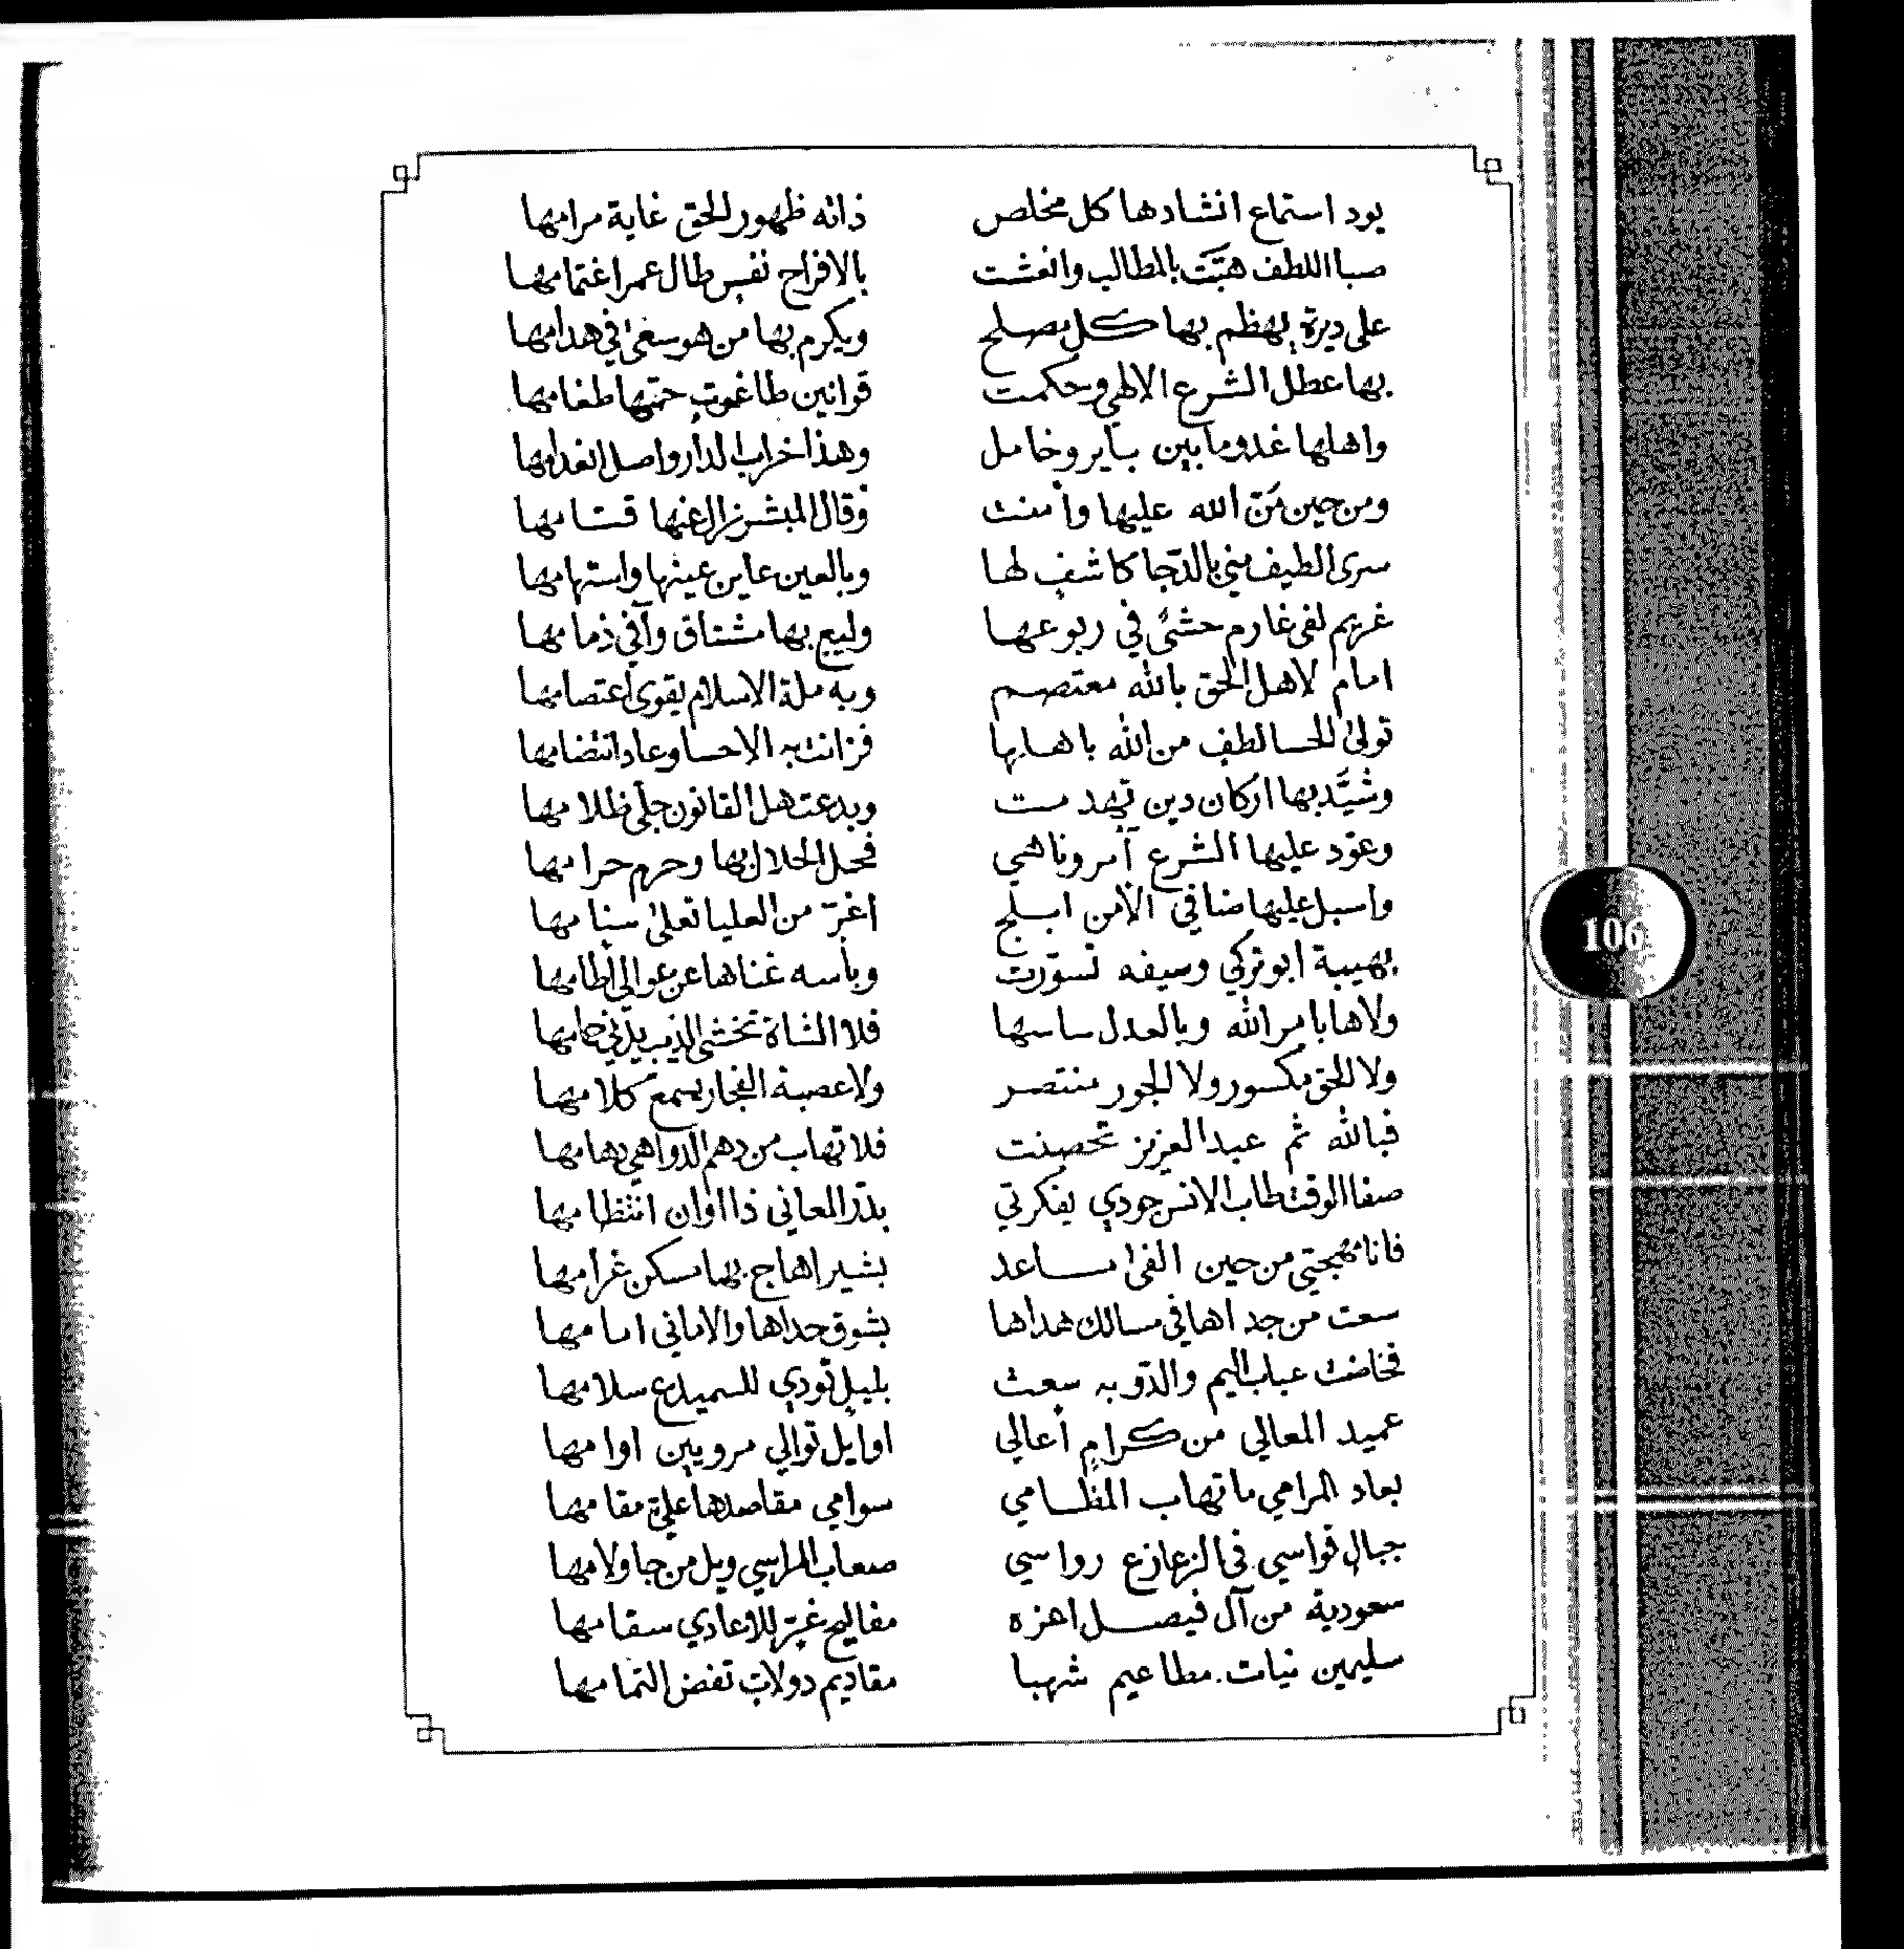 يود استماع انشادها كل مخلص    ذاته ظهور الحق غاية مرامها
صبا اللطف هبَّت بالمطالب وانعشت    بالافراح نفس طال عمر اغتمامها
على ديرة يهظم بها كل مصلح    ويكرم بها من هو سعى في هدامها
بها عطل الشرع الالهي وحكمت    قوانين طاغوت حمتها طغامها
واهلها غدوا ما بين باير وخامل    وهذا خراب الدار واصل انعدامها
ومن حين مَنّ الله عليها وأمنت    وقال المبشر زال عنها قتامها
سرى الطيف مني بالدّجا كاشف لها    وبالعين عاين عينها واستهامها
غريم لفى غارم حشىً في ربوعها    وليع بها مشتاق وآفي ذمامها
امام لاهل الحق بالله معتصم    وبه ملة الاسلام يقوى اعتصامها
تولى للحسا لطف من الله باهلها    فزانت به الاحسا وعاد انتضامها
وشيَّد بها اركان دين تهدمت    وبدعت هل القانون جلّى ظلامها
وعوّد عليها الشرع آمر وناهي    فحل الحلال بها وحرم حرامها
واسبل عليها ضافي الأمن ابلج    اغرّ من العليا تعلى سنامها
بهيبة ابو تركي وسيفه تسوّرت    وبأسه غناها عن عوالي أطامها
ولاها بامر الله وبالعدل ساسها    فلا الشاة تخشى الذيب يدّني حامها
ولا للحق مكسور ولا للجور منتصر    ولا عصبة الفجار يسمع كلامها
فبالله ثم عبد العزيز تحصنت    فلا تهاب من دهم الدواهي دهامها
صفا الوقت طاب الانس جودي يفكرتي    بدرّ المعاني ذا اوان انتظامها
فانا مهجتي من حين الفى مساعد    بشير اهاج بها مسكن غرامها
سعت من جداها في مسالك هداها    بشوق حداها والاماني امامها
فخاضت عباب اليم والدّو به سعت    بليل تودي للسميدع سلامها
عميد المعالي من كرامٍ أعالي    اوايل توالي مرويين اوامها
بعاد المرامي ما تهاب المظامي    سوامي مقاصدها عليّ مقامها
جبالٍ قواسي في الزعازع رواسي    صعاب المراسي ويل من جا ولامها
سعودية من آل فيصل اعزه    مفاليح غرّ للاعادي سقامها
سليمين نيات. مطاعيم شهبا    مقاديم دولات تفض التمامها
106